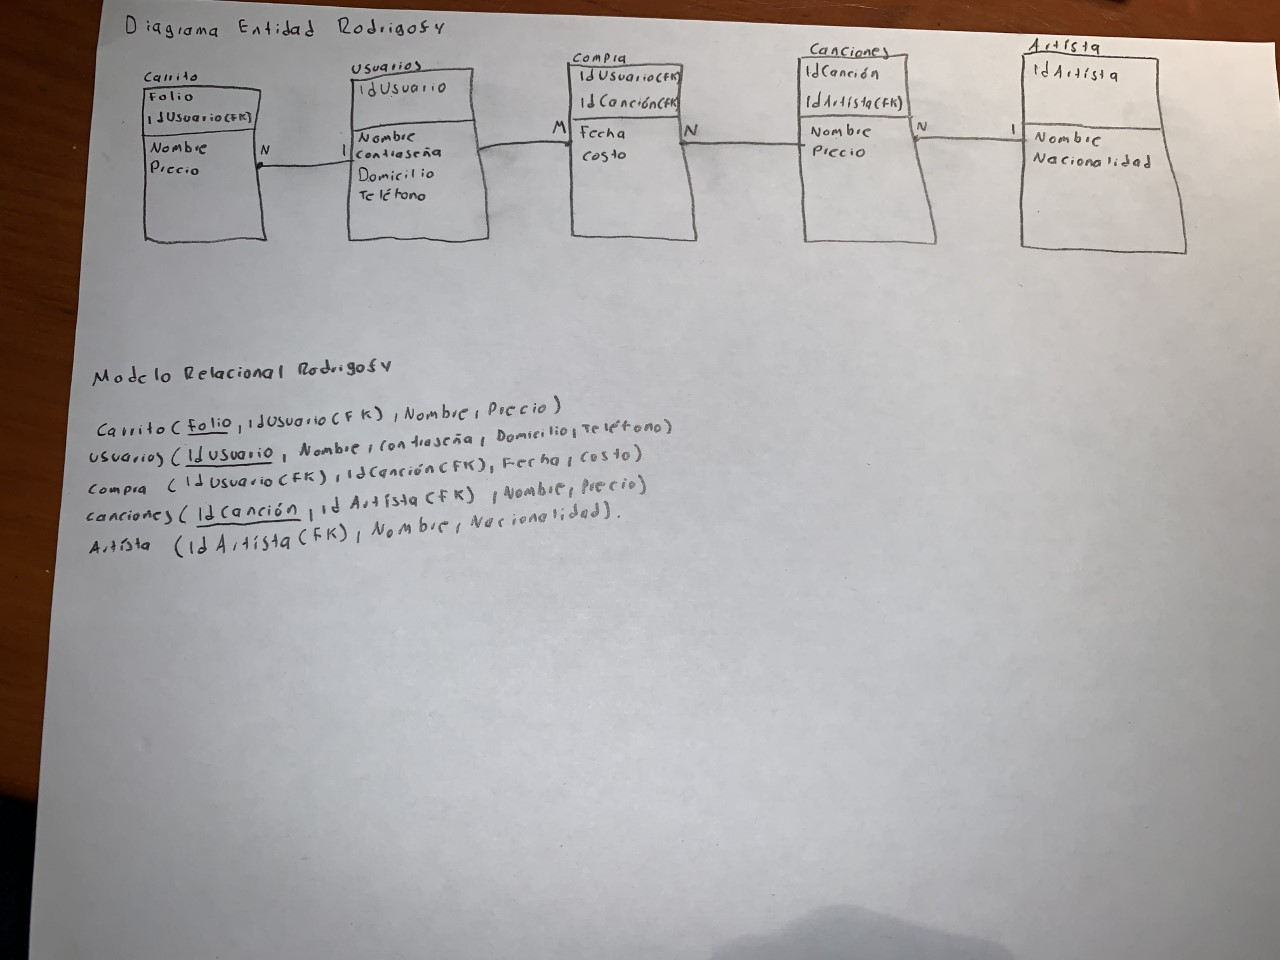 Diagrama Entidad Rodrigosfy
Carrito
Folio
IdUsuario(FK)
Nombre
Precio
N
1
Usuarios
IdUsuario
Nombre
contraseña
Domicilio
Teléfono
M
Compra
IdUsuario(FK
IdCanción(FK
Fecha
costo
N
Canciones
IdCanción
IdArtísta(FK)
Nombre
Precio
N
1
Artísta
IdArtísta
Nombre
Nacionalidad
Modelo Relacional Rodrigosfy
Carrito (Folio, IdUsuario(FK), Nombre, Precio)
Usuarios (IdUsuario, Nombre, contraseña, Domicilio, Teléfono)
Compra (IdUsuario(FK), IdCanción(FK), Fecha, costo)
Canciones (IdCanción, id Artísta(FK), Nombre, Precio)
Artísta (Id Artísta(FK), Nombre, Nacionalidad).